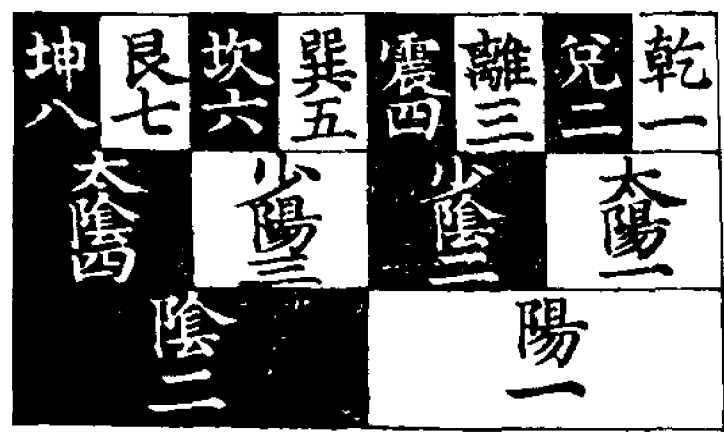 乾一 兌二 離三 震四 巽五 坎六 艮七 坤八
太陽一 少陰二 少陽三 太陰四
陽一 陰二